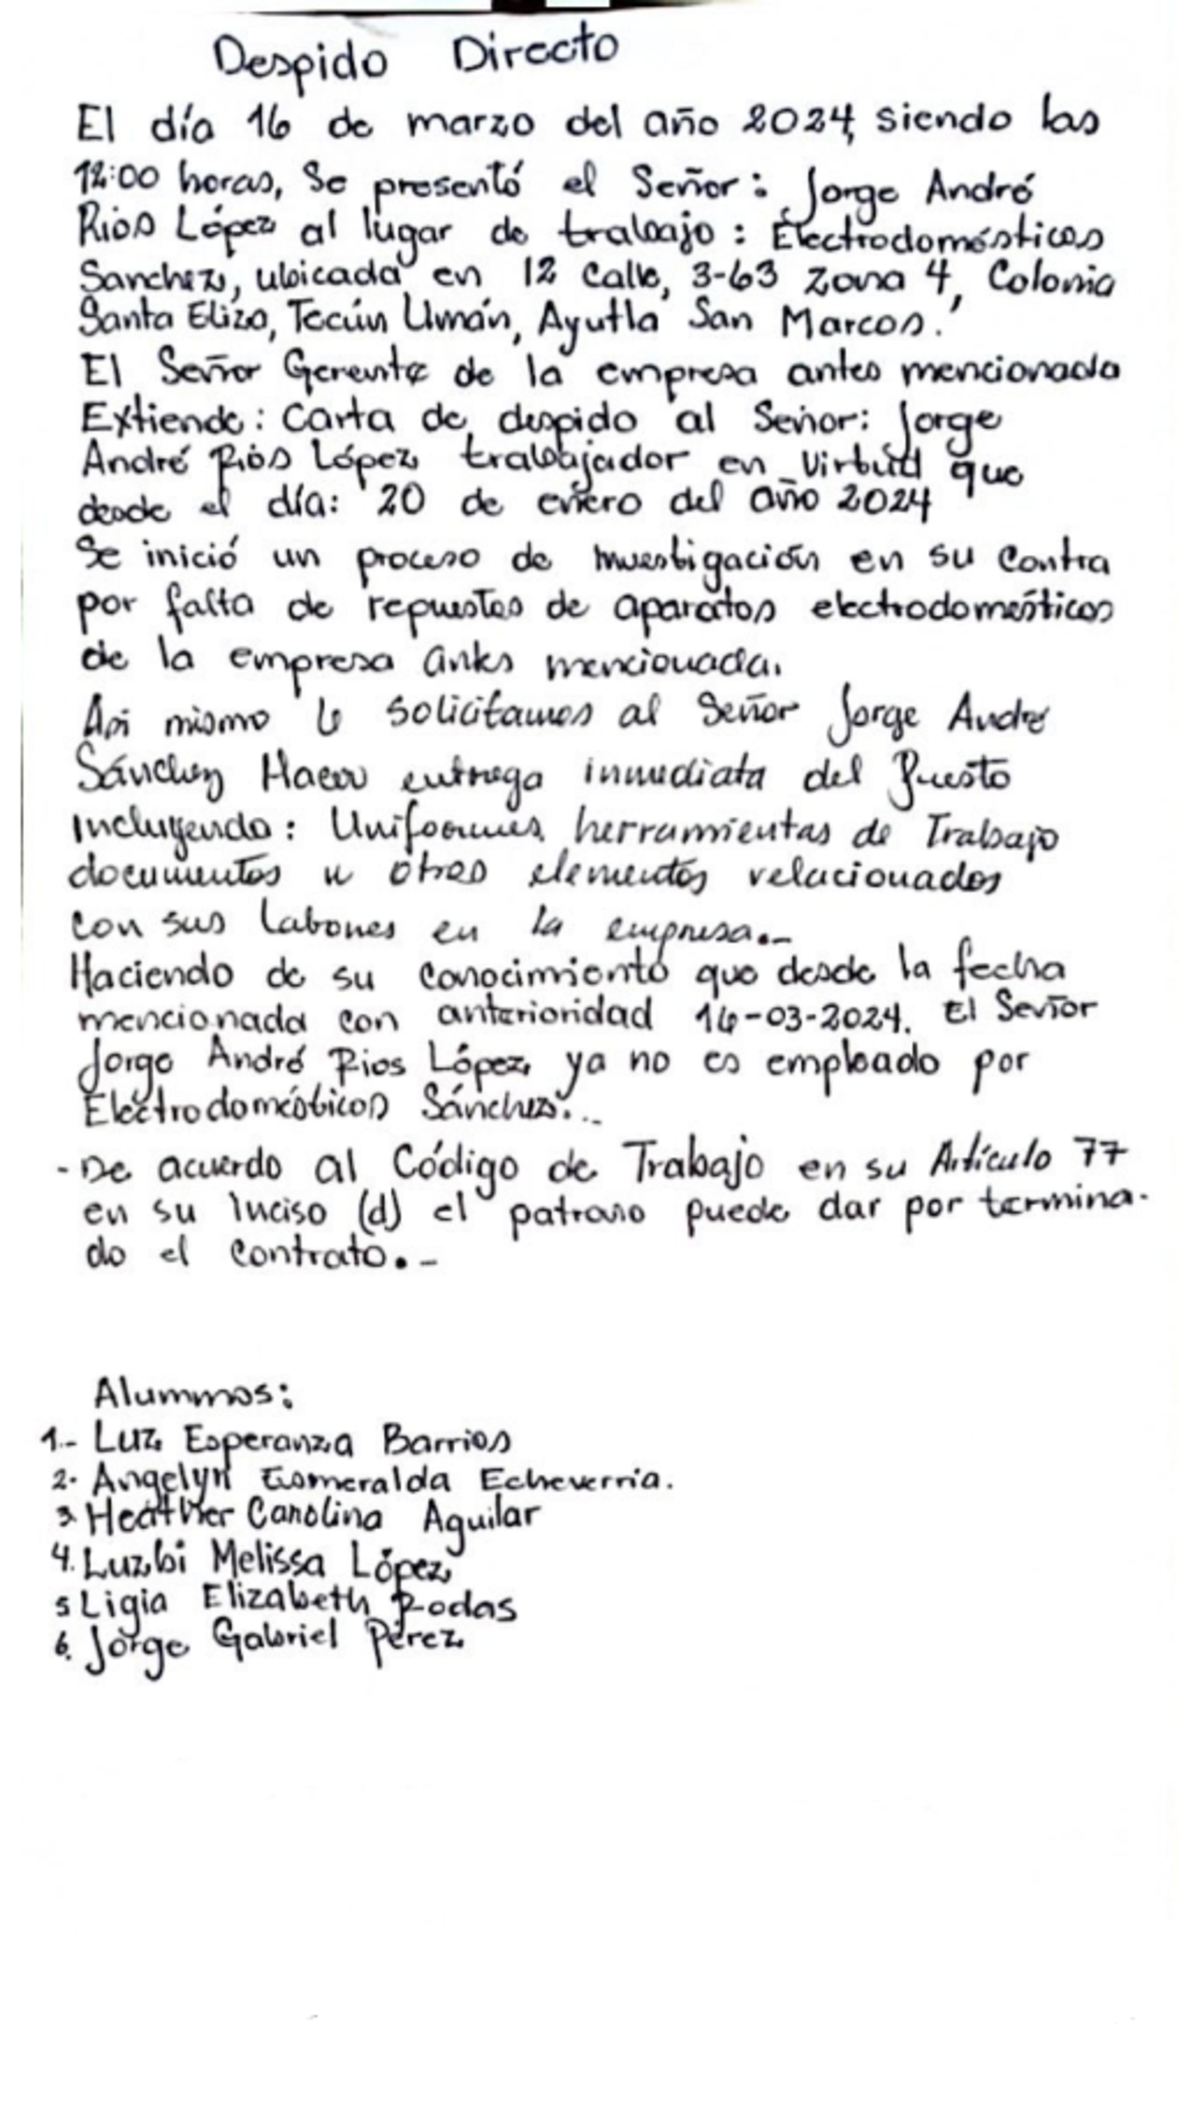 Despido Directo
El día 16 de marzo del año 2024, siendo las
12:00 horas, Se presentó el Señor: Jorge André
Rios López al lugar de trabajo: Electrodomésticos
Sanchez, ubicada en 12 Calle, 3-63 Zona 4, Colonia
Santa Eliza, Tecún Umán, Ayutla San Marcos.
El Señor Gerente de la empresa antes mencionada
Extiende: Carta de despido al Señor: Jorge
André Riós López trabajador en Virtud que
desde el día: 20 de enero del año 2024
Se inició un proceso de investigación en su Contra
por falta de repuestos de aparatos electrodomésticos
de la empresa antes mencionada.
Asi mismo le solicitamos al Señor Jorge Andre
Sánchez Hacer entrega inmediata del Puesto
Incluyendo: Uniformes, herramientas de Trabajo
documentos u otros elementos relacionados
con sus labores en la empresa.-
Haciendo de su conocimiento que desde la fecha
mencionada con anterioridad 16-03-2024. El Señor
Jorge André Rios López, ya no es empleado por
Electrodomésticos Sánchez...
- De acuerdo al Código de Trabajo en su Artículo 77
en su Inciso (d) el patrono puede dar por termina-
do el contrato.-
Alumnos:
1.- Luz Esperanza Barrios
2. Angelyn Esmeralda Echeverria.
3 Heather Carolina Aguilar
4. Luzbi Melissa López
5 Ligia Elizabeth Rodas
6. Jorge Gabriel Pérez